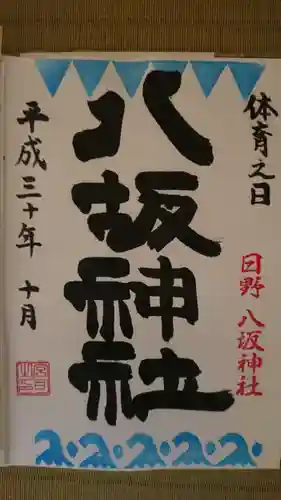 体育之日
日野 八坂神社
八坂神社
平成三十年 十月